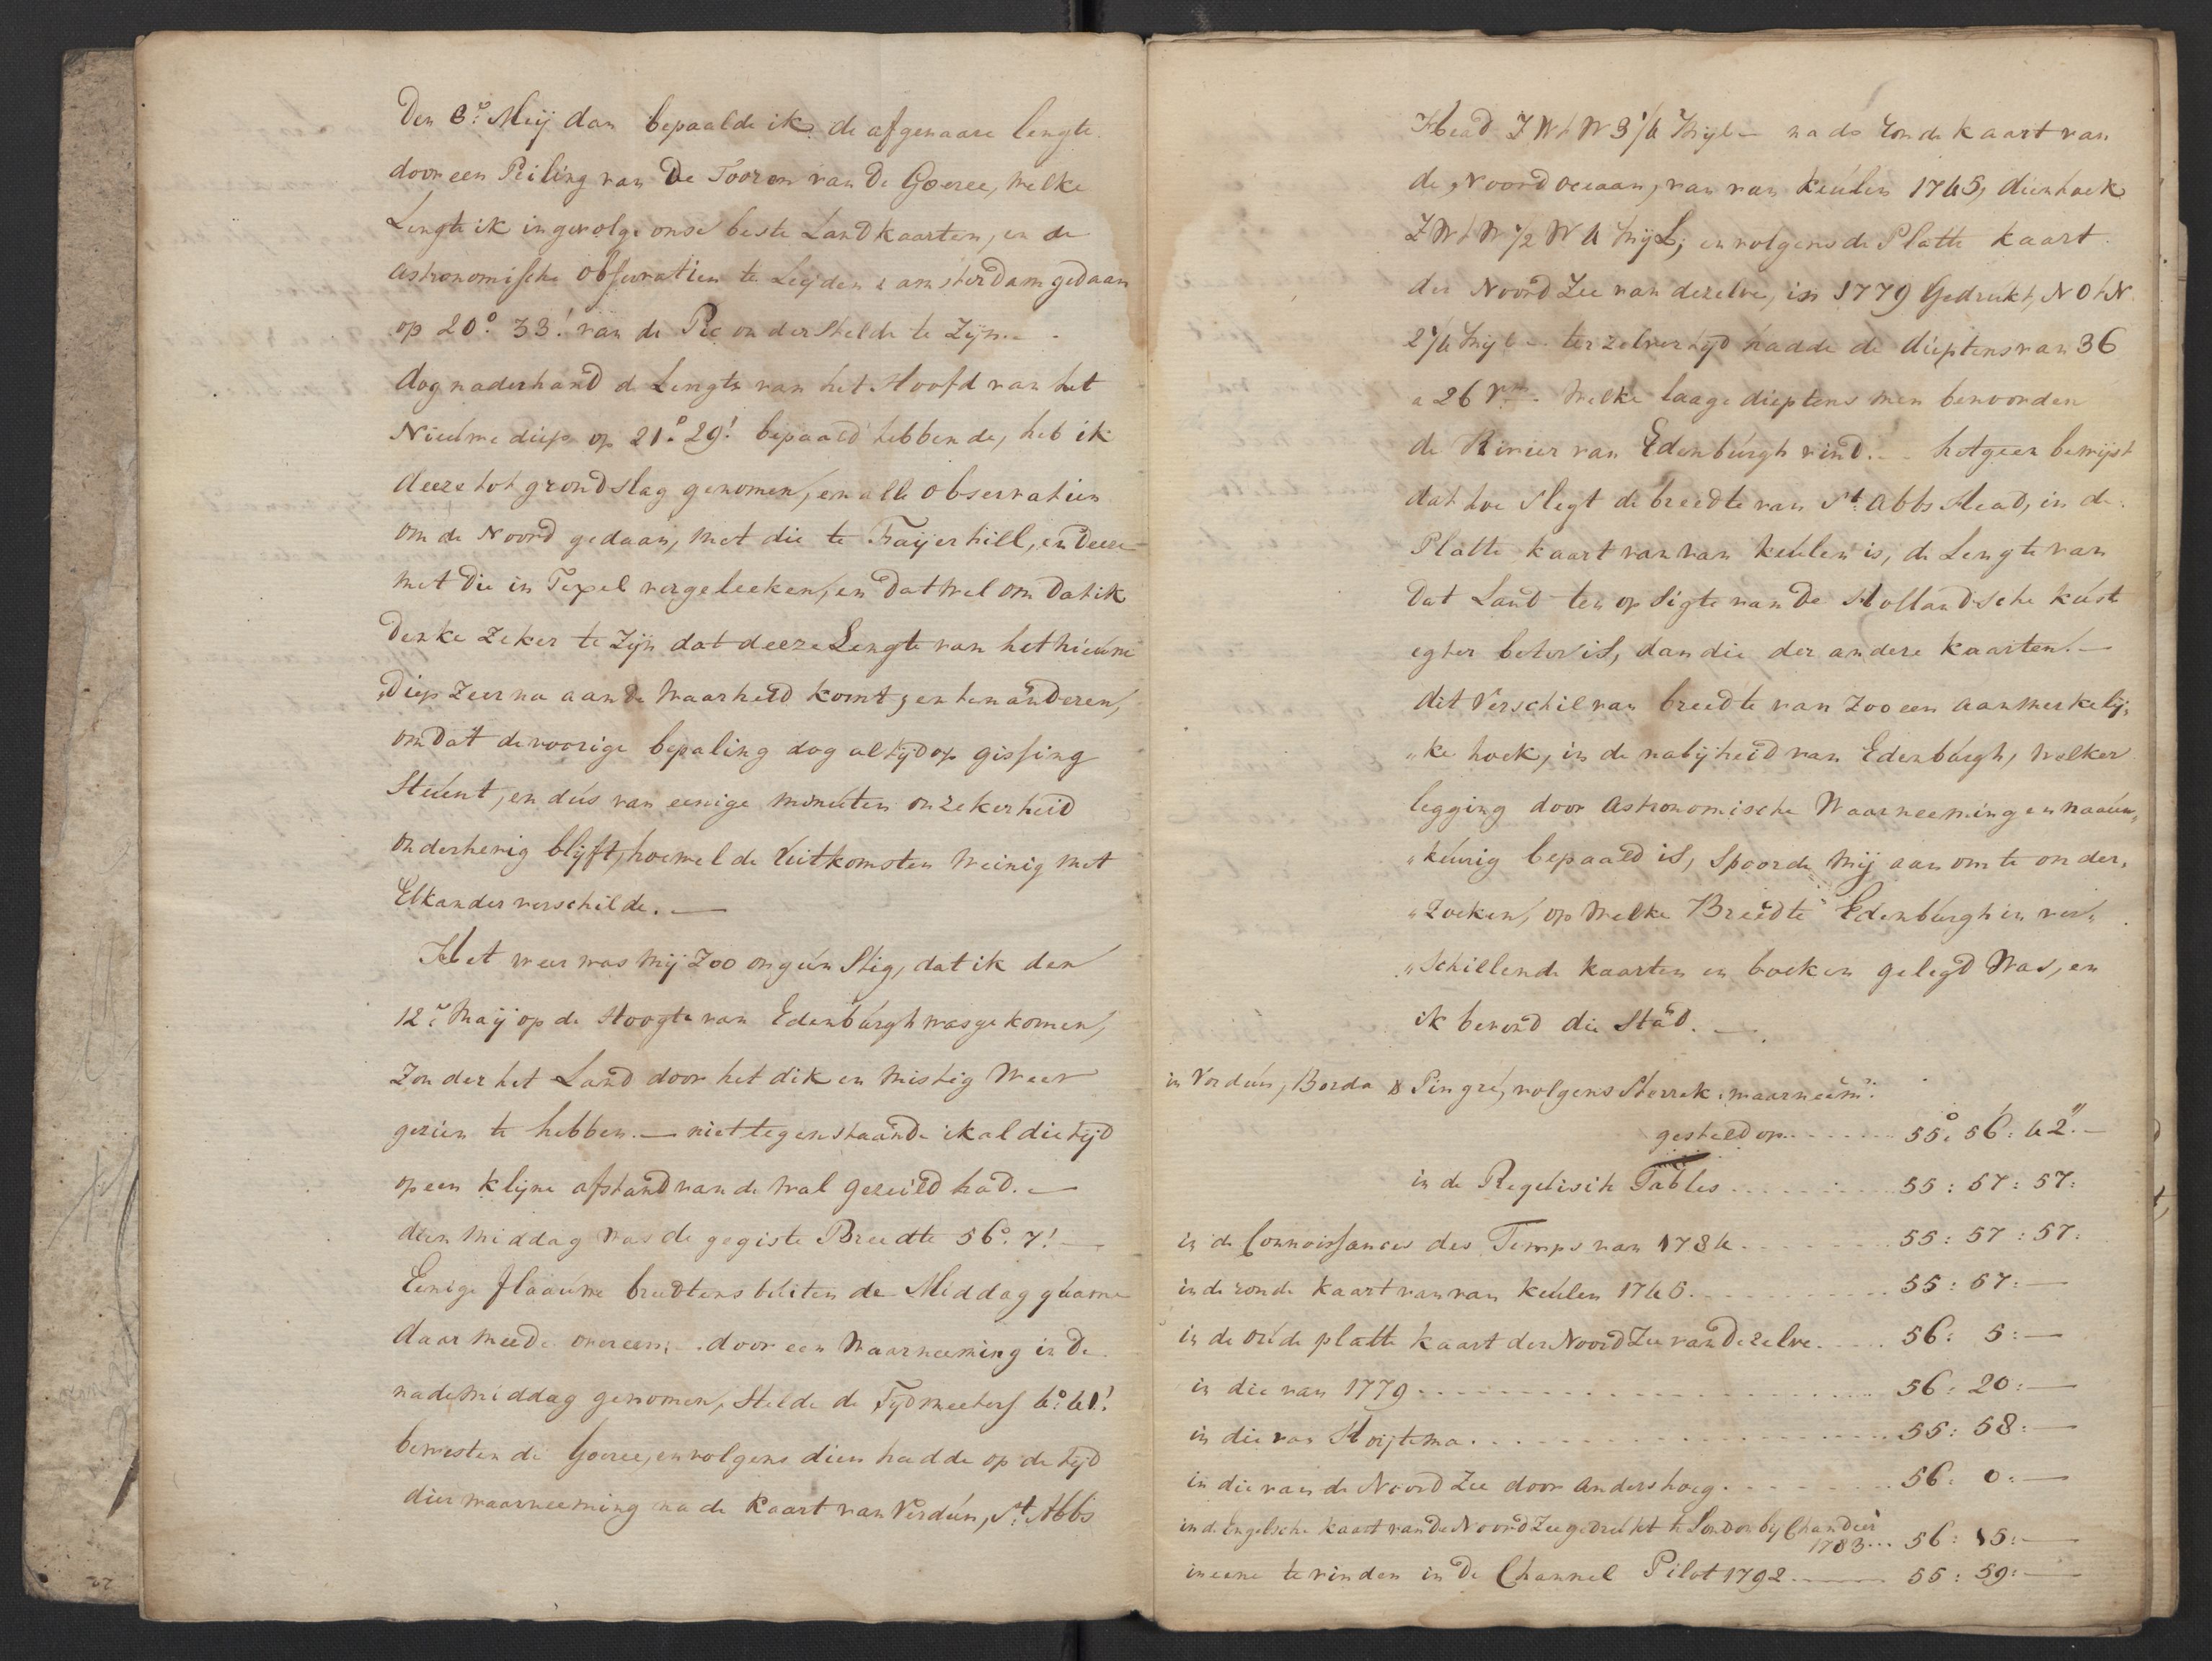 Den 8e. Meij dan bepaalde ik de afgevaare lengte
door een Peiling van De Tooren van De Goeree, welke
Lengte ik ingevolge onse beste Landkaarten, en de
astronomische observatien te Leijden & amsterdam gedaan
op 20°. 33! van de Pic onderstelde te Zijn. -
dog naderhand de Lengte van het Hoofd van het
Nieuwe diep op 21°. 29! bepaald hebbende, heb ik
deeze tot grondslag genomen, en alle observatien
om de Noord gedaan, met die te Faijerhill, en deeze
met Die in Texel vergeleeken, en Dat wel om Dat ik
Denke Zeker te Zijn dat deeze Lengte van het nieuwe
„Diep Zeer na aan de Waarheid komt, en ten anderen,
om Dat de voorige bepaling dog altijd op gissing
Steunt, en dus van eenige minuten onzekerheid
onderhevig blijft, hoewel de uitkomsten Weinig met
Elkander verschilde. —
Het weer was Mij Zoo ongunstig, dat ik den
12e. Maij op de Hoogte van Edenburgh was gekomen,
Zonder het Land door het dik en Mistig Weer
gezien te hebben. — niet tegenstaande ik al die tijd
op een klijne afstand van de Wal gezeild had. —
dien middag was de gegiste Breedte 56°. 7! —
Eenige flaauwe breedtens buiten de Middag quame
daar meede overeen; - door een Waarneeming in De
nademiddag genomen, Stelde de Tijdmeeters 4°. 41!
bewesten de Goeree, en volgens dien hadde op de tijd
dier waarneeming na de Kaart van Verdun, St. Abbs
Head ZWtW 3 1/4 Mijl — na de Ronde kaart van
de „Noord oceaan, van van keulen 1745, dien hoek
ZWtW 1/2 W 4 Mijl; en volgens de Platte kaart
der Noord Zee van dezelve, in 1779 Gedrukt, NOtN
2 1/4 Mijl — terzelvertijd hadde de dieptens van 36
a 26 Vm. Welke laage dieptens men benoorden
de Rivier van Edenburgh vind. — hetgeen bewijst
dat hoe slegt de breedte van St. Abbs Head, in de
Platte kaart van van keulen is, de Lengte van
Dat Land ten opsigte van De Hollandsche kust
egter beter is, dan die der andere kaarten. —
dit Verschil van breedte van Zoo een aanmerkelij„
„ke hoek, in de nabijheid van Edenburgh, welker
legging door astronomische Waarneemingen naauw„
„keurig bepaald is, Spoorde Mij aan om te onder„
„Zoeken, op Welke Breedte Edenburgh in ver„
„schillende kaarten en boeken gelegd Was, en
ik bevond die Stad. —
in Verdun, Borda & Pingré, volgens Sterrek. waarneem:
gesteld op . . . . . . 55°. 56: 42". —
in de Requisite Tables . . . . . . 55: 57: 57:
in de Connoissances des Temps van 1784 . . . . . . 55: 57: 57:
in de ronde kaart van van keulen 1745 . . . . . . 55: 57: —
in de oude platte kaart der Noord Zee van Dezelve . . . . 56: 5: —
in die van 1779 . . . . . . 56: 20: —
in die van Hoijtema . . . . . . 55: 58: —
in die van de Noord Zee door Andershoeg . . . . . . 56: 0: —
in d. Engelsche kaart van De Noord Zee gedrukt te London bij
1783 . . . 56: 15: —
in eene te vinden in De Channel Pilot 1792 . — 55: 59: —